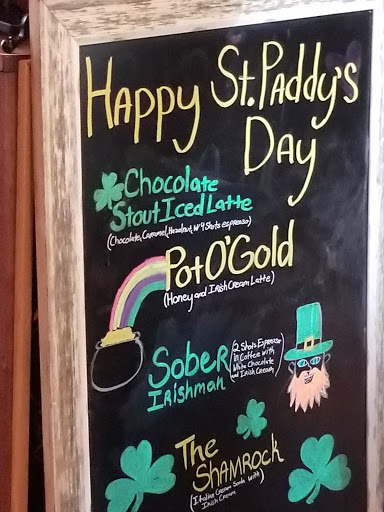 Happy St. Paddy's
Day
Chocolate
Stout Iced Latte
(Chocolate, Caramel, Hazelnut, W/ 4 Shots espresso)
Pot O'Gold
(Honey and Irish Cream Latte)
Sober
Irishman
(2 Shots Espresso
in Coffee with
White Chocolate
and Irish Cream)
The
Shamrock
(Italian Cream Soda with
Irish Cream)